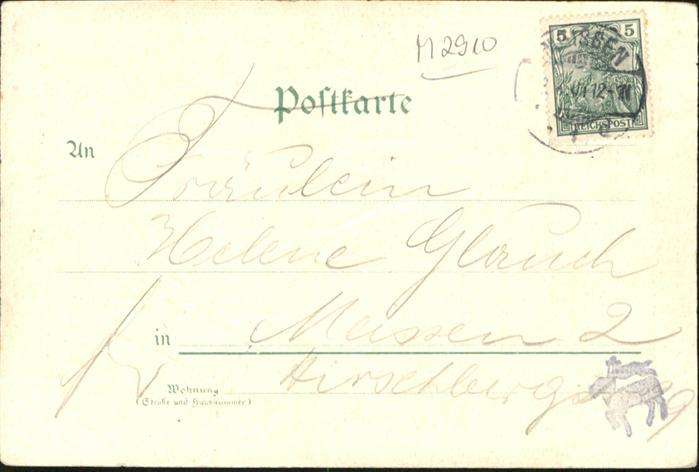 M2910
5 5
REICHSPOST
Postkarte
An
Fräulein
Helene Glauch
in Meissen 2
Wohnung
(Straße und Hausnummer)